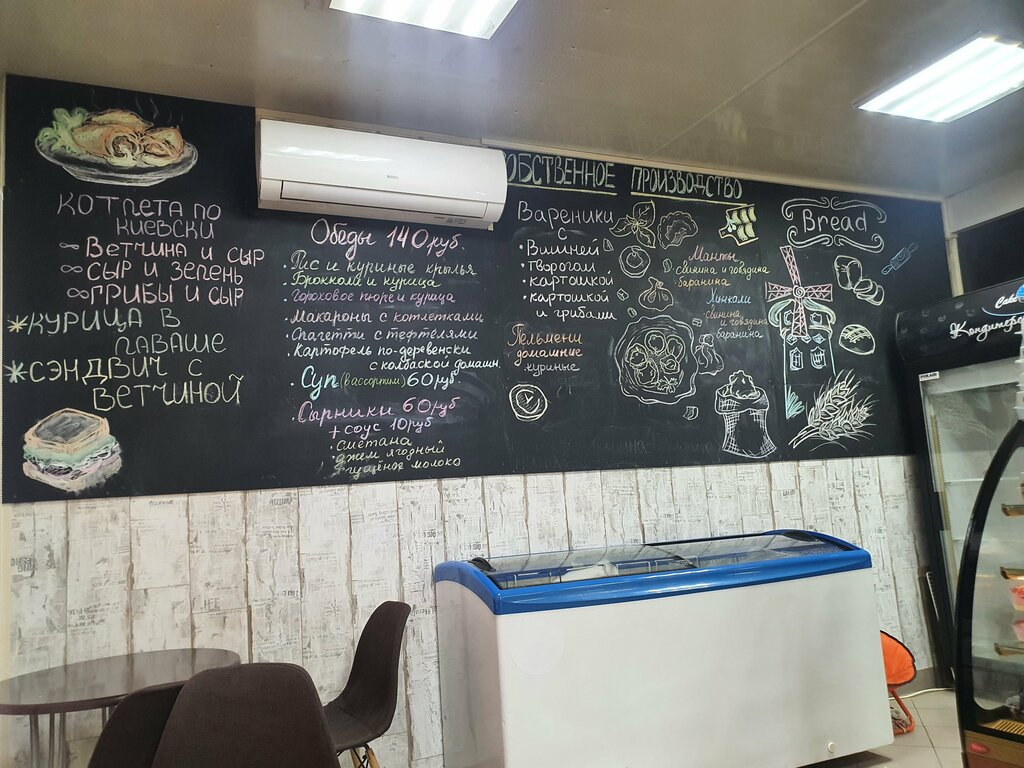 КОТЛЕТА ПО
КИЕВСКИ
ВЕТЧИНА И СЫР
СЫР И ЗЕЛЕНЬ
ГРИБЫ И СЫР
*КУРИЦА В
ЛАВАШЕ
*СЭНДВИЧ С
ВЕТЧИНОЙ
Обеды 140 руб.
• Рис и куриные крылья
• Брокколи и курица
• Гороховое пюре и курица
• Макароны с котлетками
• Спагетти с тефтелями
• Картофель по-деревенски
с колбаской домашн.
• Суп (в ассортим) 60 руб.
• Сырники 60 руб
+ соус 10 руб
• сметана
• джем ягодный
• сгущёное молоко
ОБСТВЕННОЕ ПРОИЗВОДСТВО
Вареники
с
• Вишней
• Творогом
• картошкой
• картошкой
и грибами
Пельмени
• домашние
• куриные
Манты
свинина и говядина
баранина
Хинкали
свинина
и говядина
баранина
Bread
Cake
Кондитерс